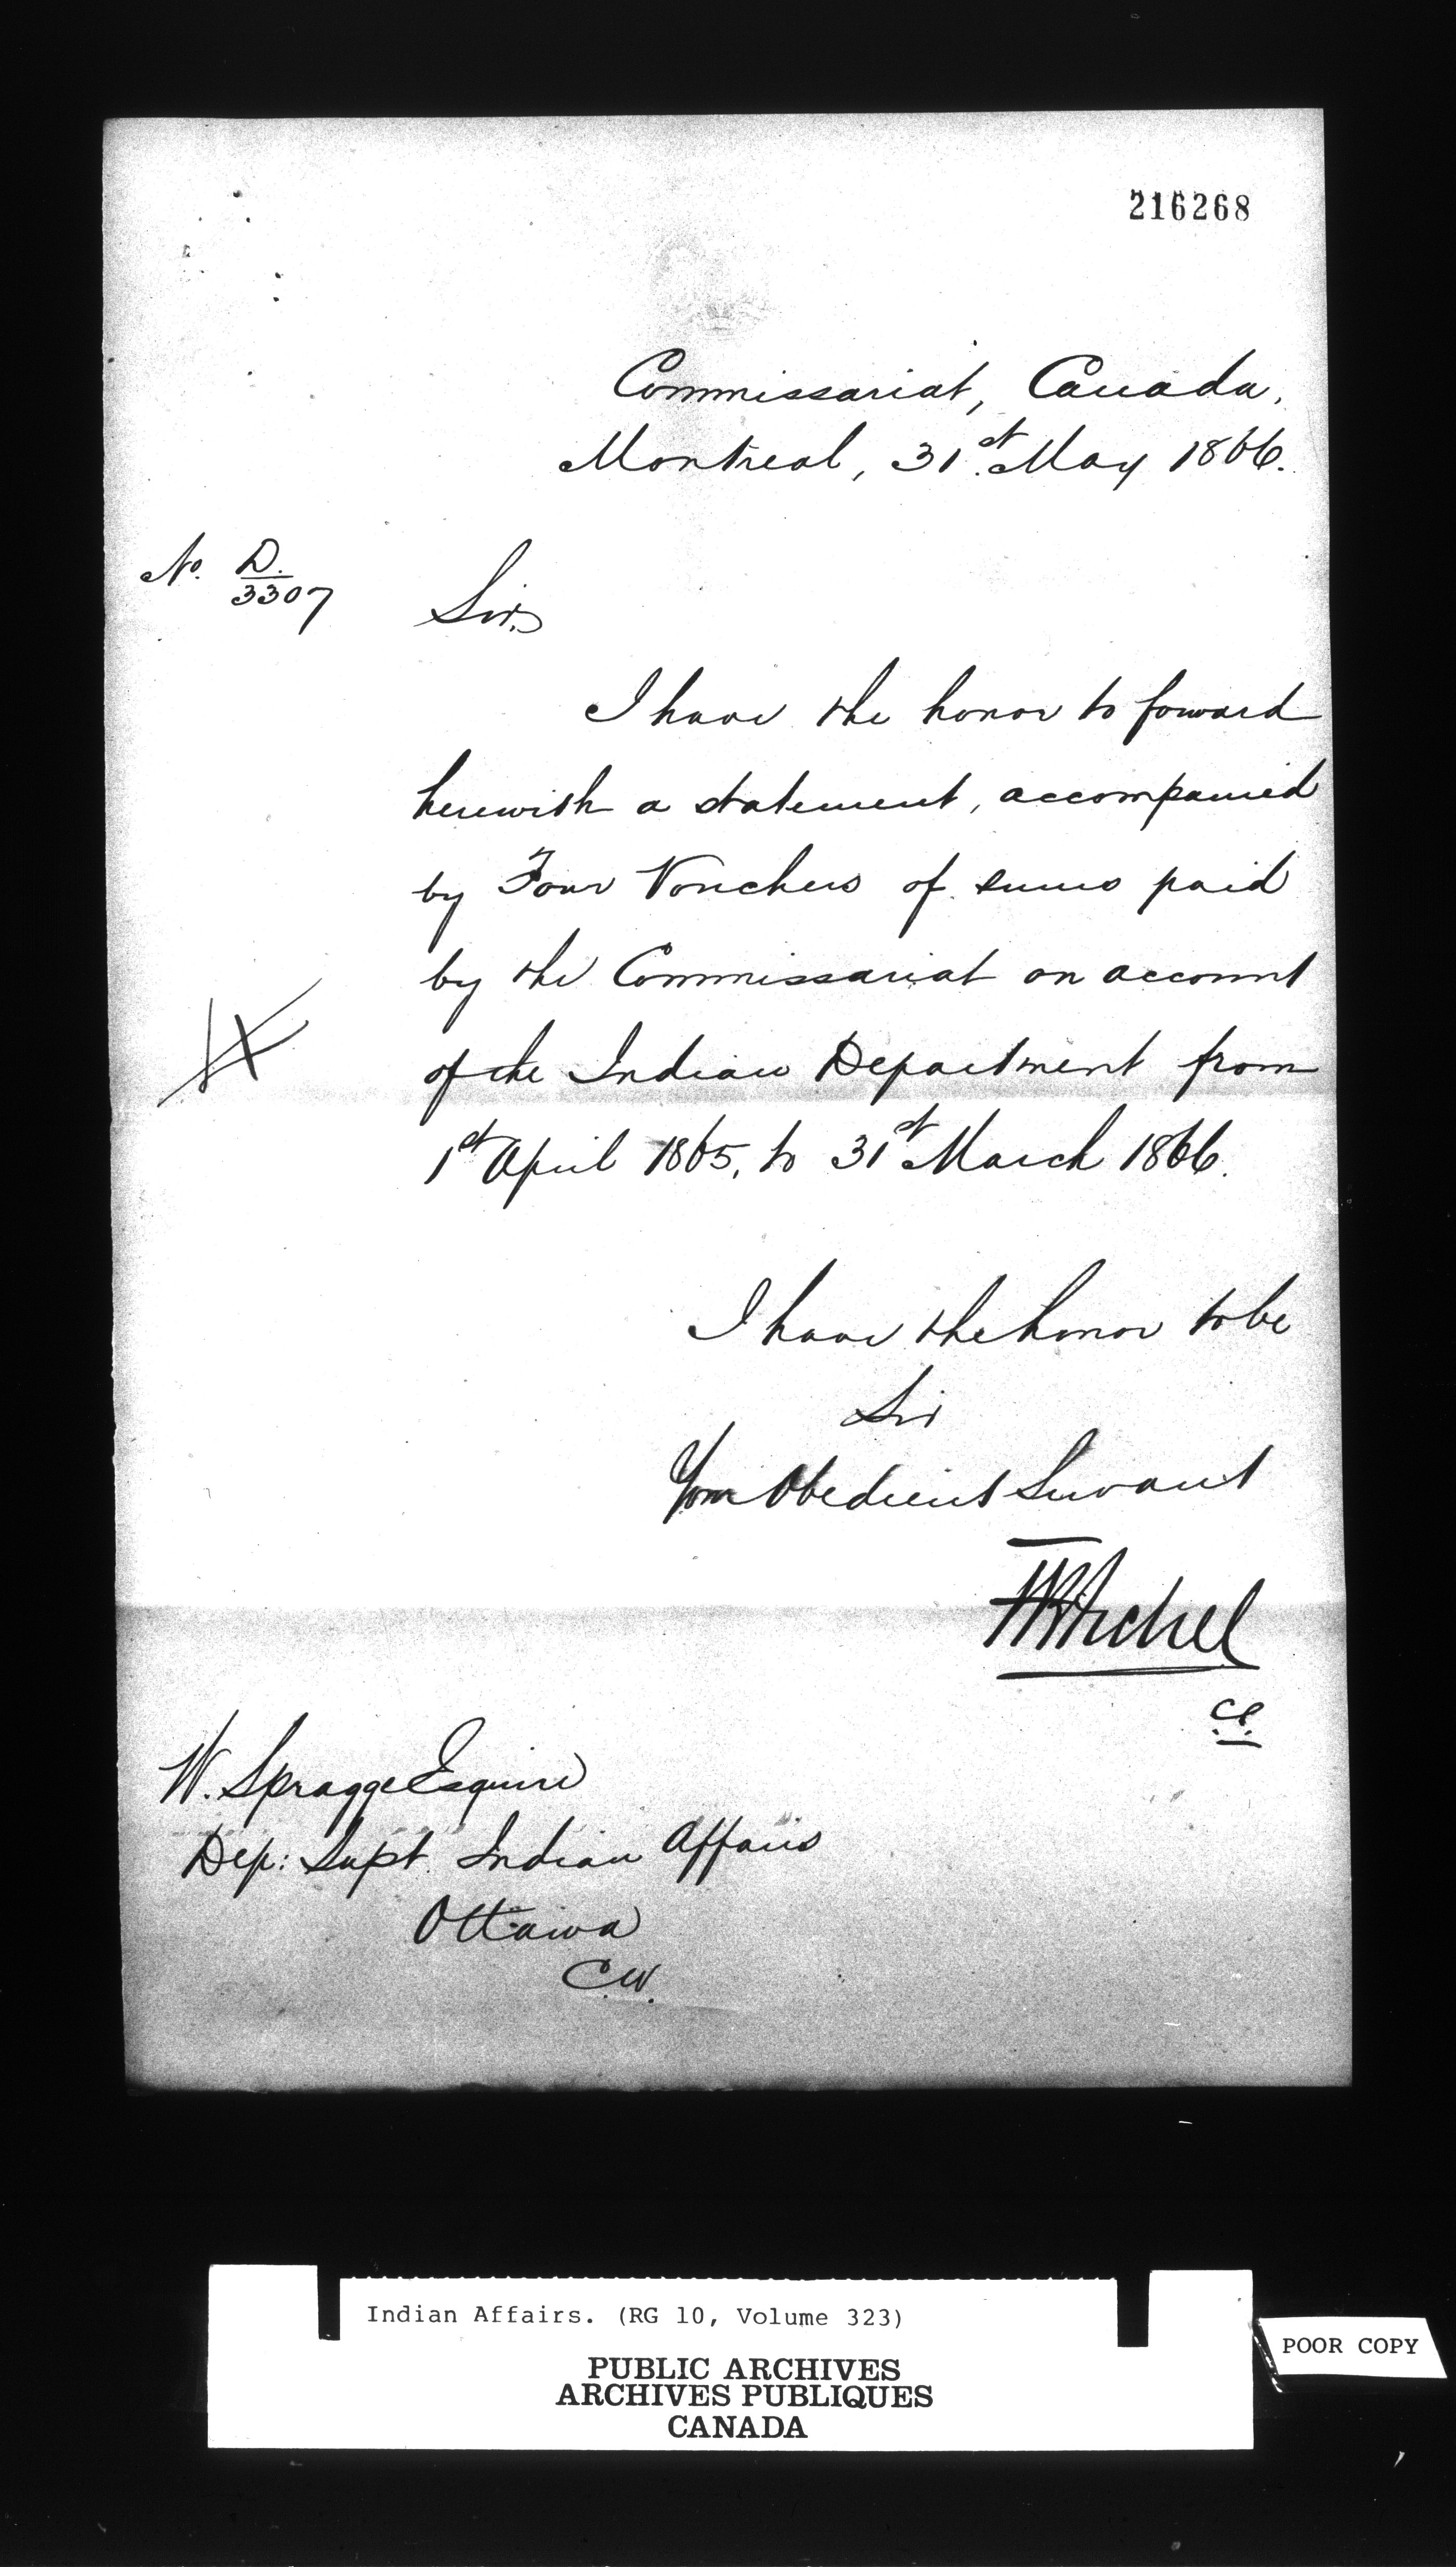 216268
Commissariat, Canada,
Montreal, 31st May 1866.
No. D.
3307
Sir,
I have the honor to forward
herewith a statement, accompanied
by Four Vouchers of sums paid
by the Commissariat on account
of the Indian Department from
1st April 1865, to 31st March 1866.
I have the honor to be
Sir
Your Obedient Servant
W. Spragge Esquire
Dep: Supt. Indian Affairs
Ottawa
C.W.
Indian Affairs. (RG 10, Volume 323)
PUBLIC ARCHIVES
ARCHIVES PUBLIQUES
CANADA
POOR COPY